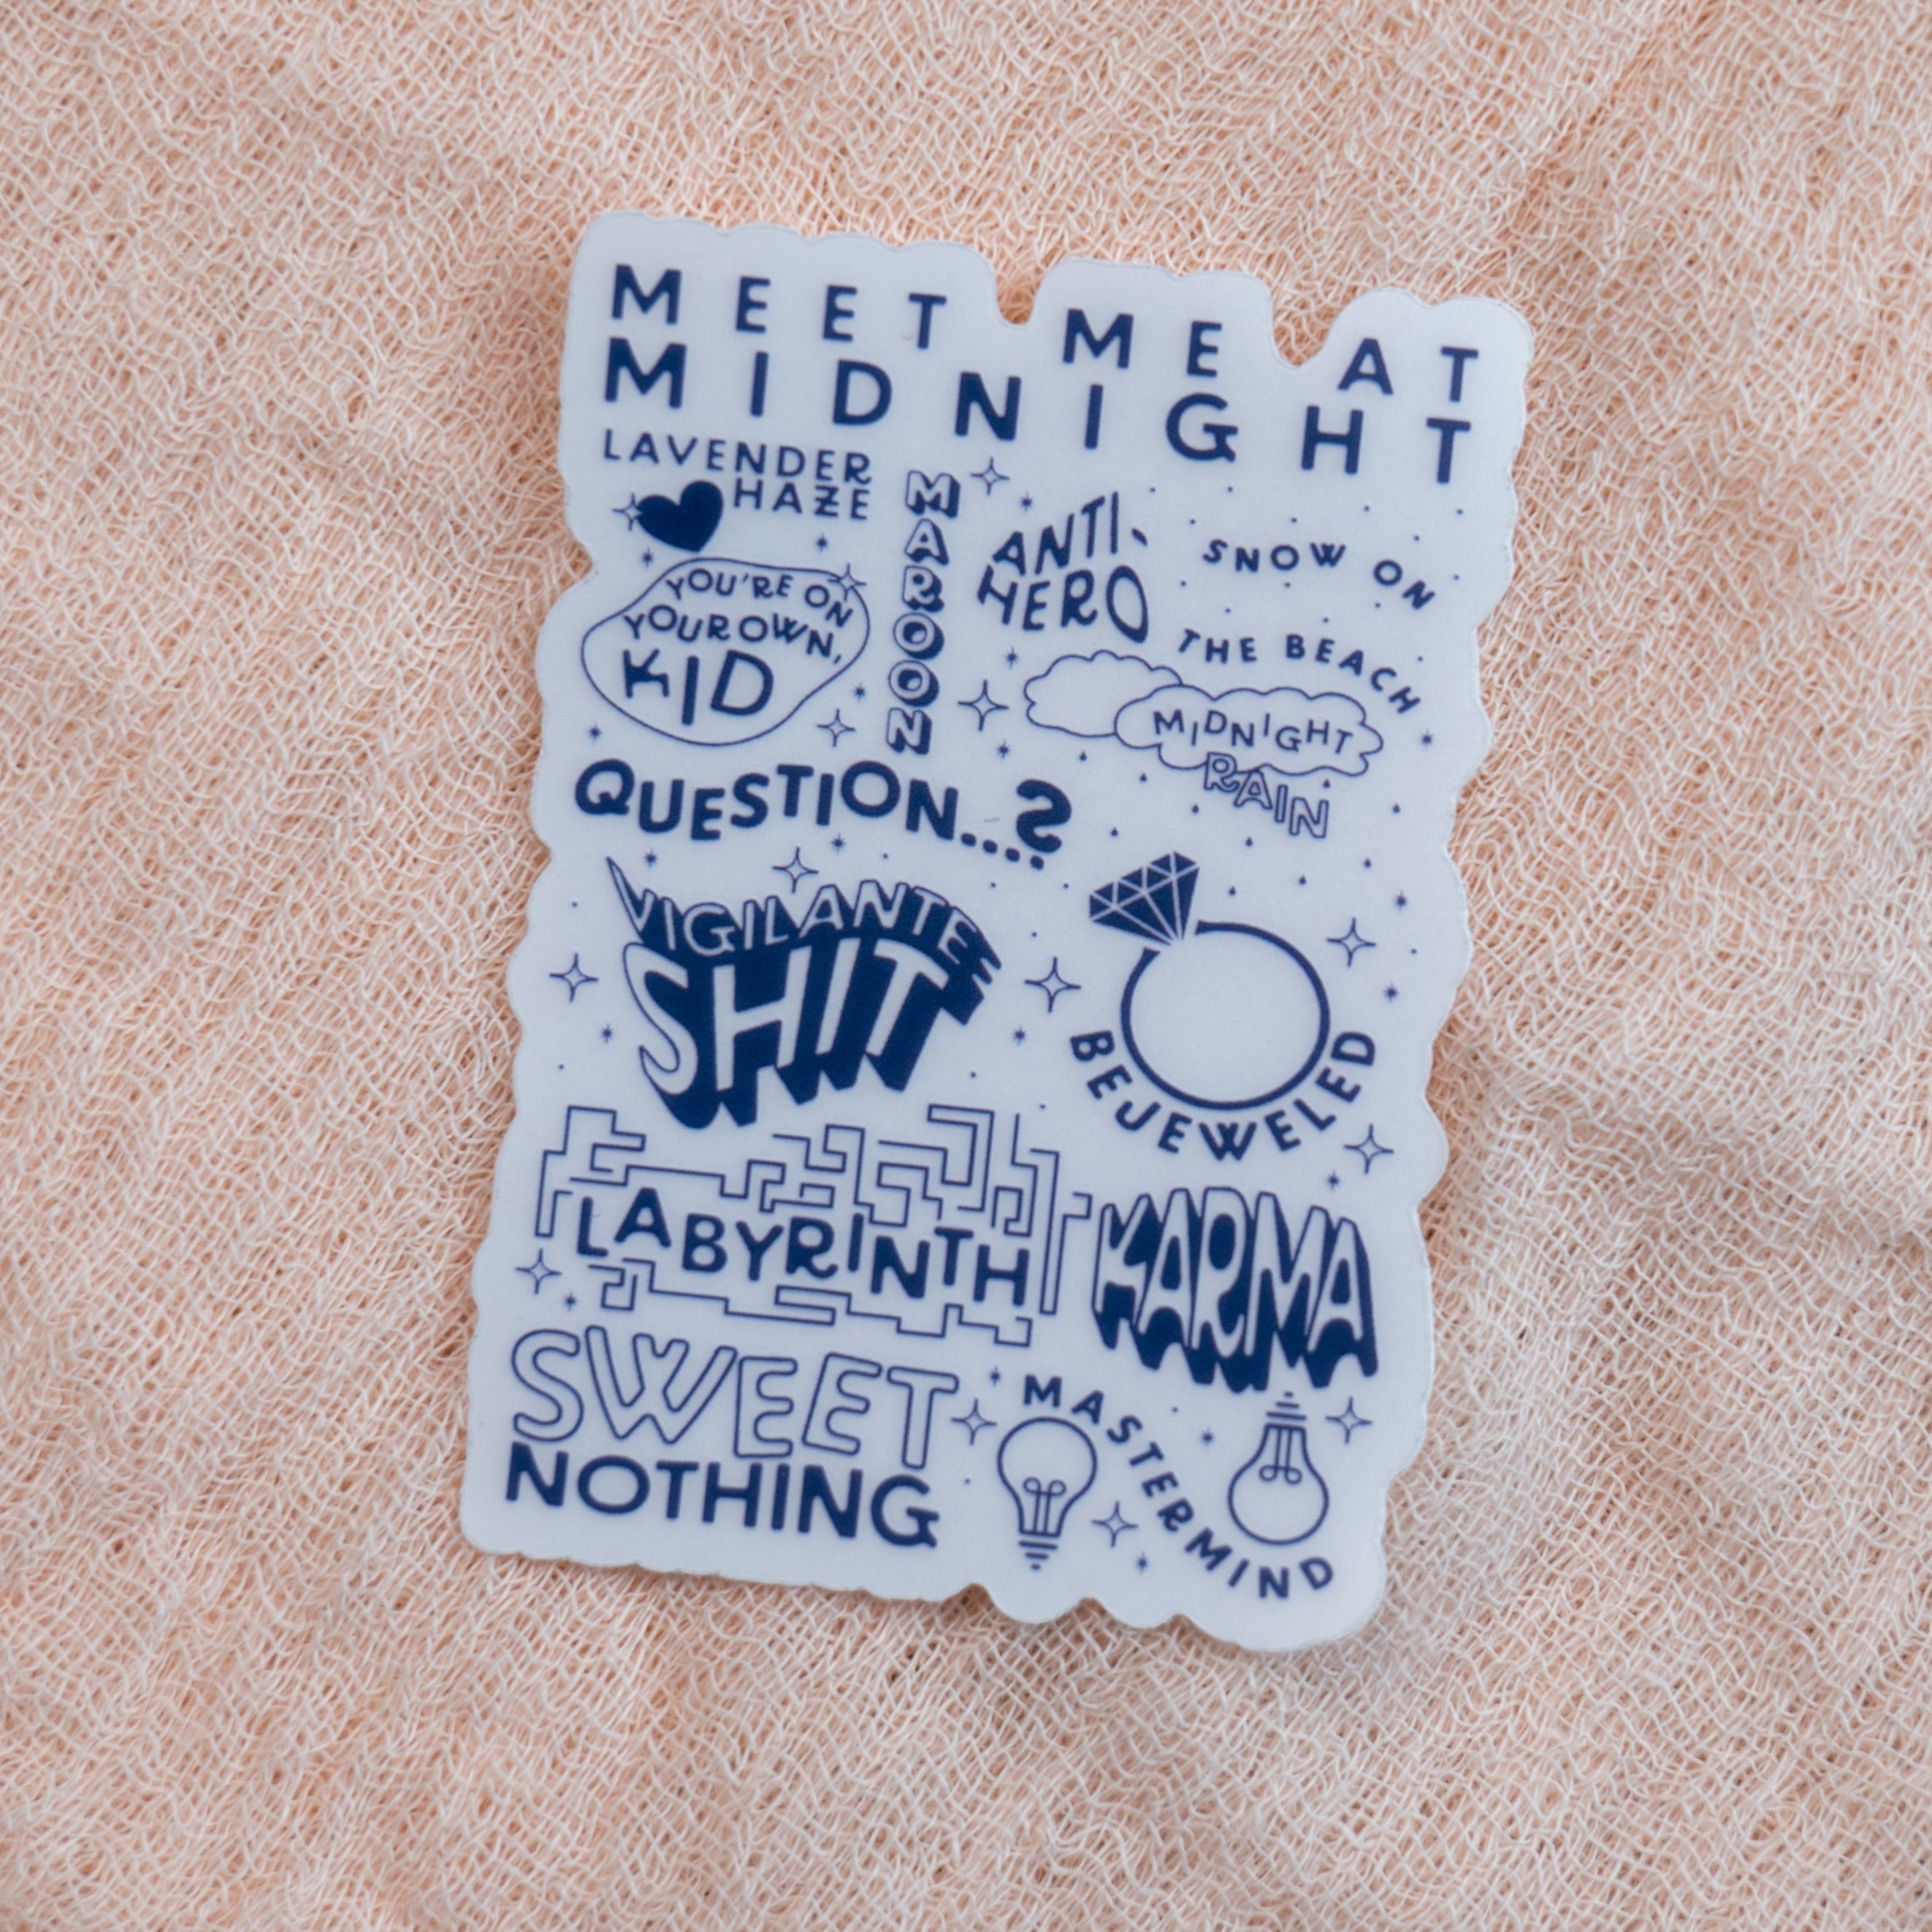 MEET ME AT
MIDNIGHT
LAVENDER
HAZE
MAROON
ANTI-
HERO
SNOW ON
THE BEACH
YOU'RE ON
YOUR OWN,
KID
MIDNIGHT
RAIN
QUESTION...?
VIGILANTE
SHIT
BEJEWELED
LABYRINTH
KARMA
SWEET
NOTHING
MASTERMIND